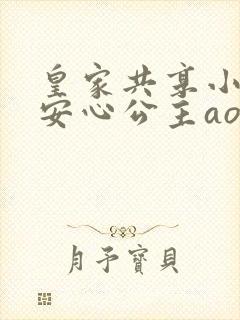 皇家共享小
安心公主ao
月予寶貝